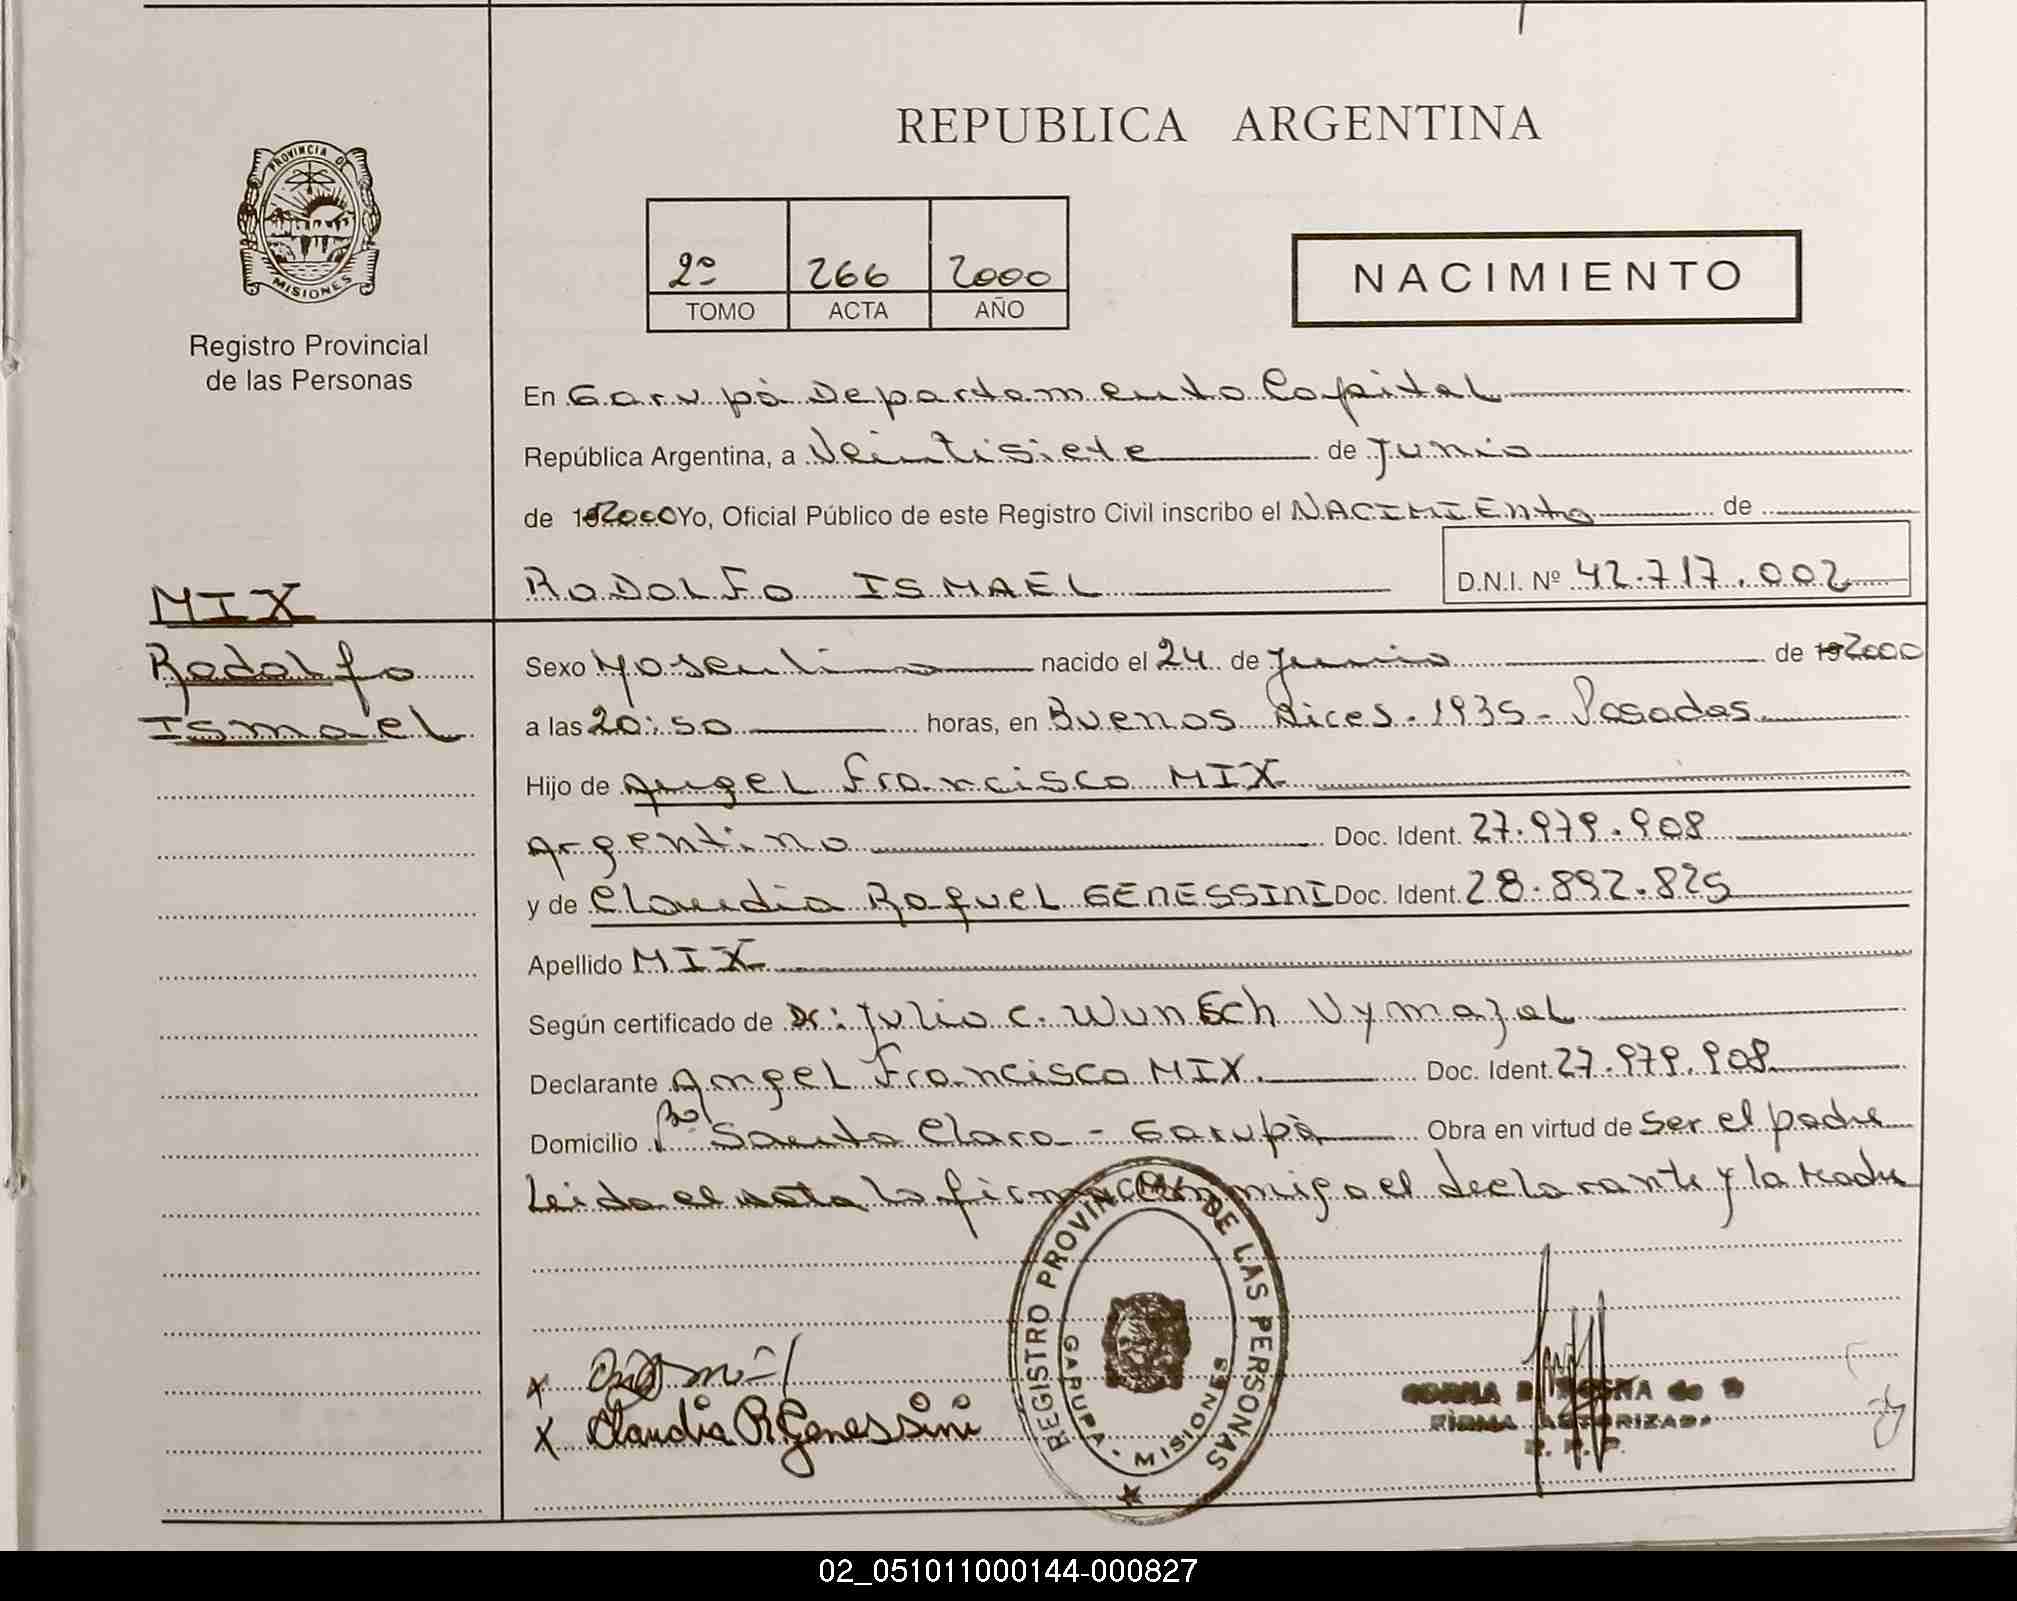 REPUBLICA ARGENTINA
PROVINCIA DE
MISIONES
Registro Provincial
de las Personas
2º 266 2000
TOMO ACTA AÑO
NACIMIENTO
En Garupá Departamento Capital
República Argentina, a Veintisiete de Junio
de 192000 Yo, Oficial Público de este Registro Civil inscribo el NACIMIENTO de
RODOLFO ISMAEL D.N.I. Nº 42.717.002
MIX
Rodolfo
Ismael
Sexo Masculino nacido el 24 de Junio de 192000
a las 20:50 horas, en Buenos Aires - 1935 - Posadas
Hijo de Angel Francisco MIX
Argentino Doc. Ident. 27.979.908
y de Claudia Raquel GENESSINI Doc. Ident. 28.892.825
Apellido MIX
Según certificado de Dr: Julio C. Wunsch Vymazal
Declarante Angel Francisco MIX Doc. Ident. 27.979.908
Domicilio Bº Santa Clara - Garupá Obra en virtud de ser el padre
Leida el acta la firman conmigo el declarante y la madre
REGISTRO PROVINCIAL DE LAS PERSONAS
GARUPA - MISIONES
X
X Claudia R Genessini
FIRMA AUTORIZADA
R. P. P.
02_051011000144-000827